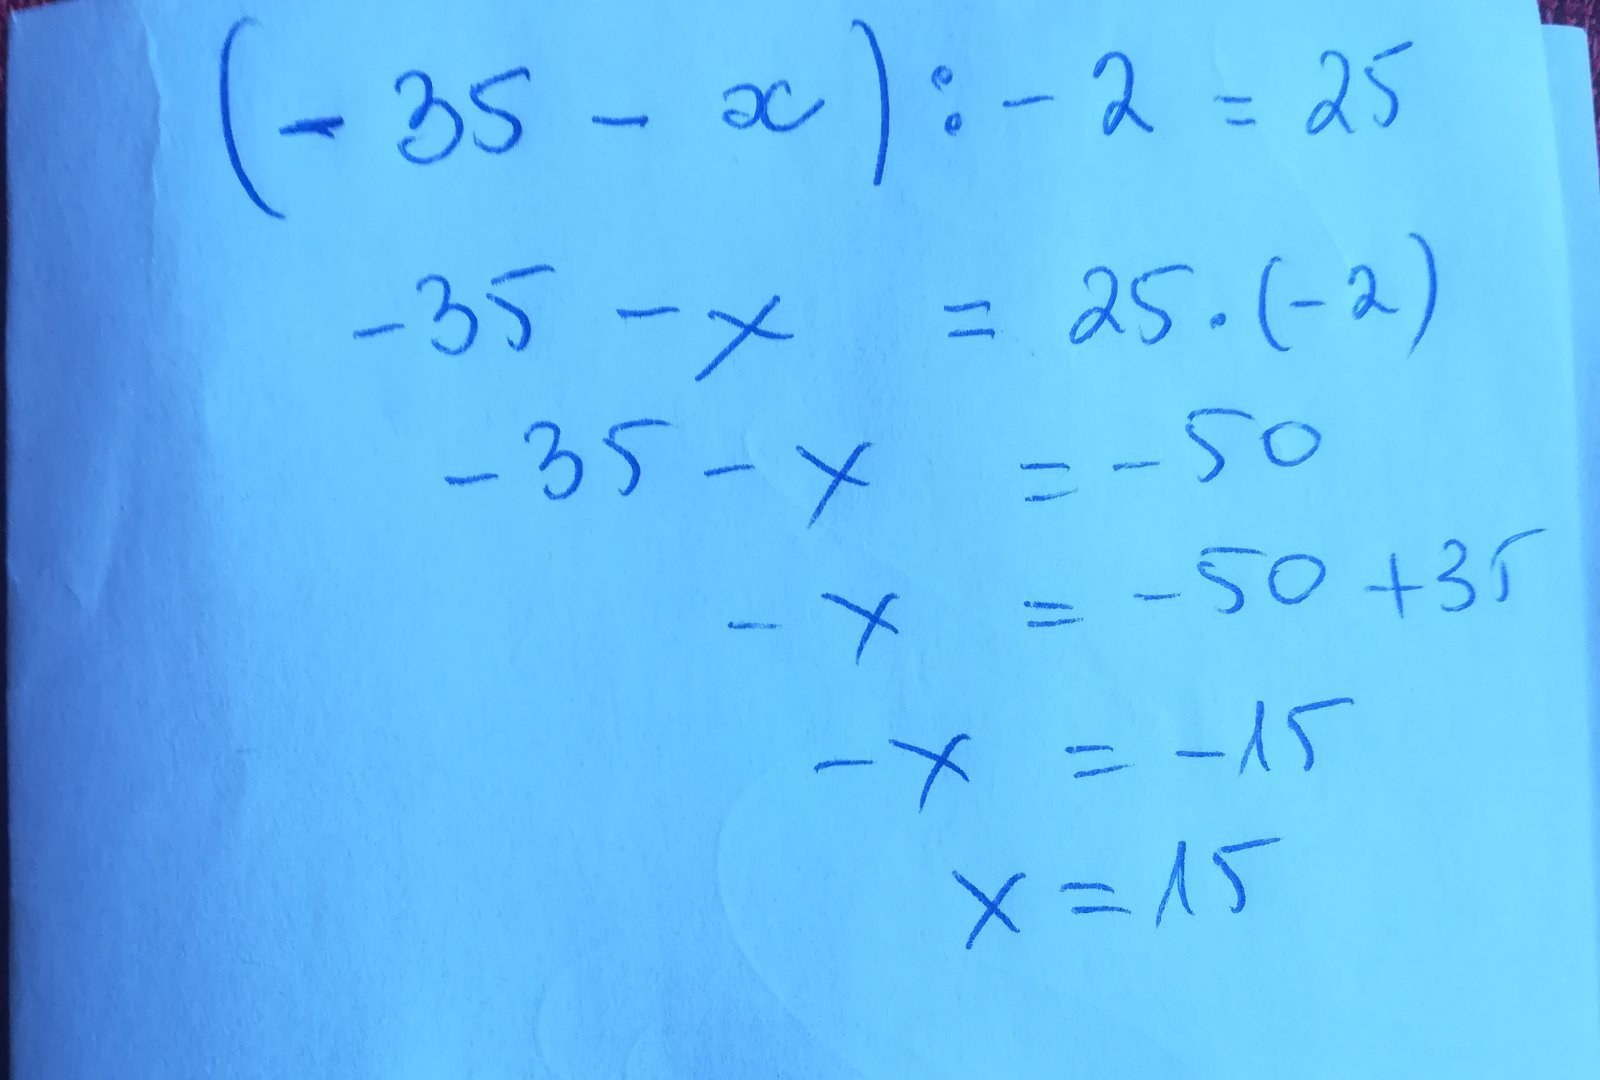 (- 35 - x) : - 2 = 25
- 35 - x = 25 . (- 2)
- 35 - x = - 50
- x = - 50 + 35
- x = - 15
x = 15